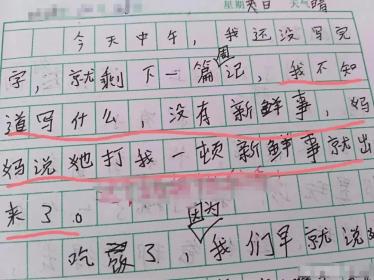 星期 天日 天气 晴
今天中午，我还没写完
字，就剩下一篇周记，我不知
道写什么，没有新鲜事，妈
妈说她打我一顿新鲜事就出
来了。
吃饭了，因为我们早就说